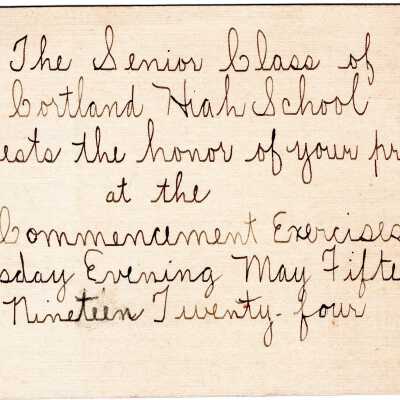 The Senior Class of
Cortland High School
ests the honor of your pr
at the
Commencement Exercises
sday Evening May Fifte
Nineteen Twenty-four